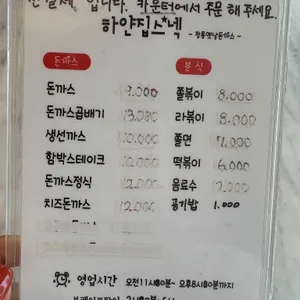 입니다. 카운터에서 주문 해 주세요.
하얀집스*넥
- 정통옛날돈까스 -
돈까스
돈까스 9.000
돈까스곱배기 13.000
생선까스 10.000
함박스테이크
돈까스정식 12.000
치즈돈까스 12.000
분식
쫄볶이 8.000
라볶이 8.000
쫄면 7.000
떡볶이 6.000
음료수 2.000
공기밥 1.000
영업시간 오전11시00분~ 오후8시00분까지